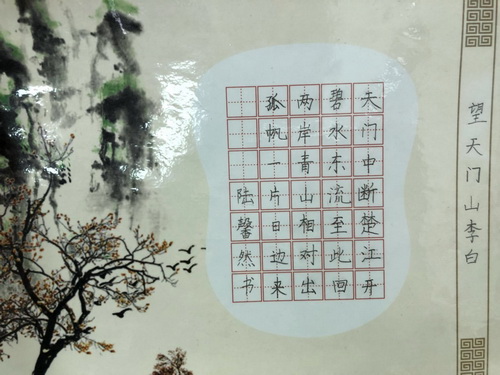 望天门山李白
天门中断楚江开
碧水东流至此回
两岸青山相对出
孤帆一片日边来
陆馨然书